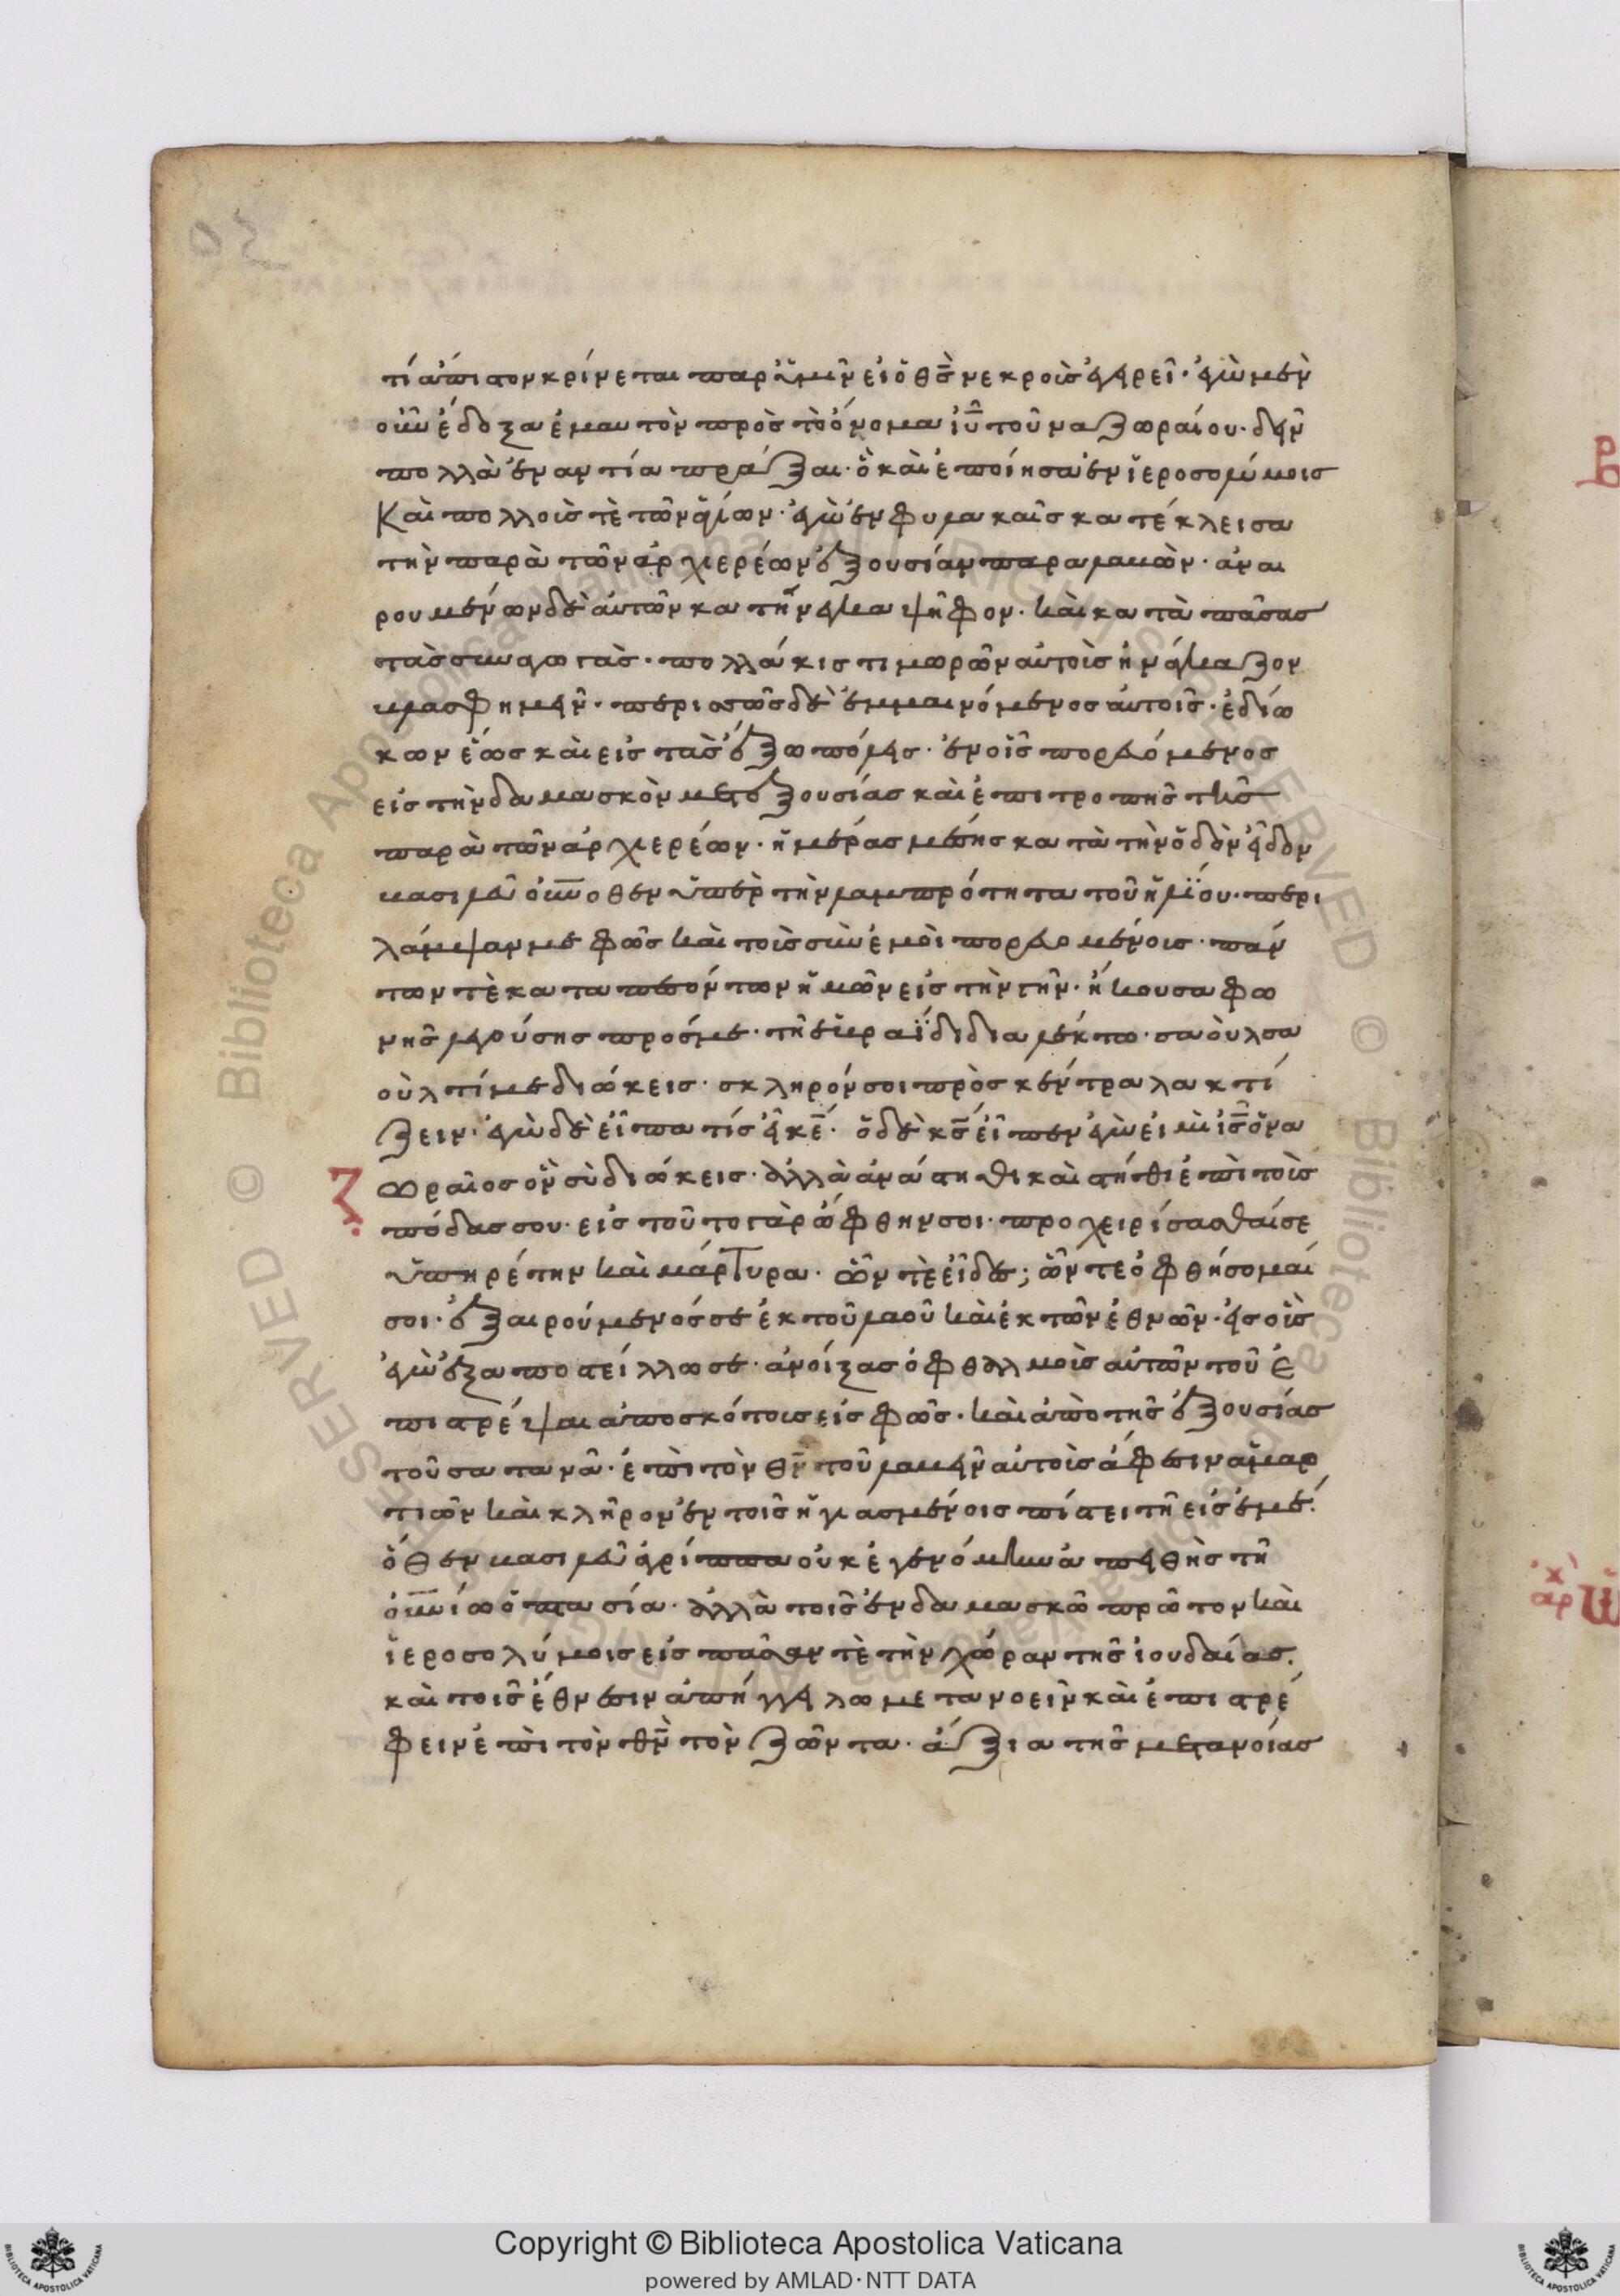 τί ἄπιστον κρίνεται παρ ὑμῖν εἰ ὁ θς νεκροὺς ἐγείρει· ἐγὼ μὲν
οὖν ἔδοξα ἐμαυτὸν πρὸς τὸ ὄνομα ιυ τοῦ ναζωραίου· δεῖν
πολλὰ ἐναντία πράξαι· ὃ καὶ ἐποίησα ἐν ἱεροσολύμοις
Καὶ πολλοὺς τὲ τῶν ἁγίων· ἐγὼ ἐν φυλακαῖς κατέκλεισα
τὴν παρὰ τῶν ἀρχιερέων ἐξουσίαν παραλαβὼν· ἀναι
ρουμένων δὲ αὐτῶν κατήνεγκα ψῆφον· καὶ κατὰ πᾶσας
τὰς συναγωγὰς· πολλάκις τιμωρῶν αὐτοὺς ἠνάγκαζον
βλασφημεῖν· περισσῶς δὲ ἐμμαινόμενος αὐτοῖς· ἐδίω
κων ἕως καὶ εἰς τὰς ἔξω πόλεις· ἐν οἷς πορευόμενος
εἰς τὴν δαμασκὸν μετ ἐξουσίας καὶ ἐπιτροπῆς τῆς
παρὰ τῶν ἀρχιερέων· ἡμέρας μέσης κατὰ τὴν ὁδὸν εἶδον
βασιλεῦ οὐνοθεν ὑπὲρ τὴν λαμπρότητα τοῦ ἡλίου· περι
λάμψαν με φῶς καὶ τοὺς σὺν ἐμοὶ πορευομένοις· πάν
των τὲ καταπεσόντων ἡμῶν εἰς τὴν γῆν· ἤκουσα φω
νῆς λεγούσης πρός με· τῆ ἑβραΐδι διαλέκτω· σαοὺλ σα
οὺλ τί με διώκεις· σκληρόν σοι πρὸς κέντρα λακτί
ζειν· ἐγὼ δὲ εἶπα τίς εἶ κε· ὁ δὲ κς εἶπεν ἐγὼ εἰμὶ ις ὁ να
ζωραῖος ὃν σὺ διώκεις· ἀλλὰ ἀνάστηθι καὶ στήθι ἐπὶ τοὺς
πόδας σου· εἰς τοῦτο γὰρ ὤφθην σοι· προχειρίσασθαί σε
ὑπηρέτην καὶ μάρτυρα· ὧν τὲ εἶδες; ὧν τε ὀφθήσομαί
σοι· ἐξαιρούμενός σε ἐκ τοῦ λαοῦ καὶ ἐκ τῶν ἐθνῶν· εἰς οὓς
ἐγὼ ἐξαποστείλλω σε· ἀνοίξας ὀφθαλμοὺς αὐτῶν τοῦ ἐ
πιστρέψαι ἀπο σκότους εἰς φῶς· καὶ ἀπὸ τῆς ἐξουσίας
τοῦ σατανᾶ· ἐπὶ τὸν θν τοῦ λαβεῖν αὐτοὺς ἄφεσιν ἁμαρ
τιῶν καὶ κλῆρον ἐν τοῖς ἡγιασμένοις πίστει τῆ εἰς ἐμέ·
ὅθεν βασιλεῦ ἀγρίππα οὐκ ἐγενόμην ἀπειθὴς τῆ
οὐνίω ὀπτασία· ἀλλὰ τοῖς ἐν δαμασκῶ πρῶτον καὶ
ἱεροσολύμοις εἰς πᾶσαν τὲ τὴν χώραν τῆς ἰουδαίας·
καὶ τοῖς ἔθνεσιν ἀπήγγελω μετανοεῖν καὶ ἐπιστρέ
φειν ἐπὶ τὸν θν τὸν ζῶντα· ἄξια τῆς μετανοίας
Copyright © Biblioteca Apostolica Vaticana
powered by AMLAD·NTT DATA